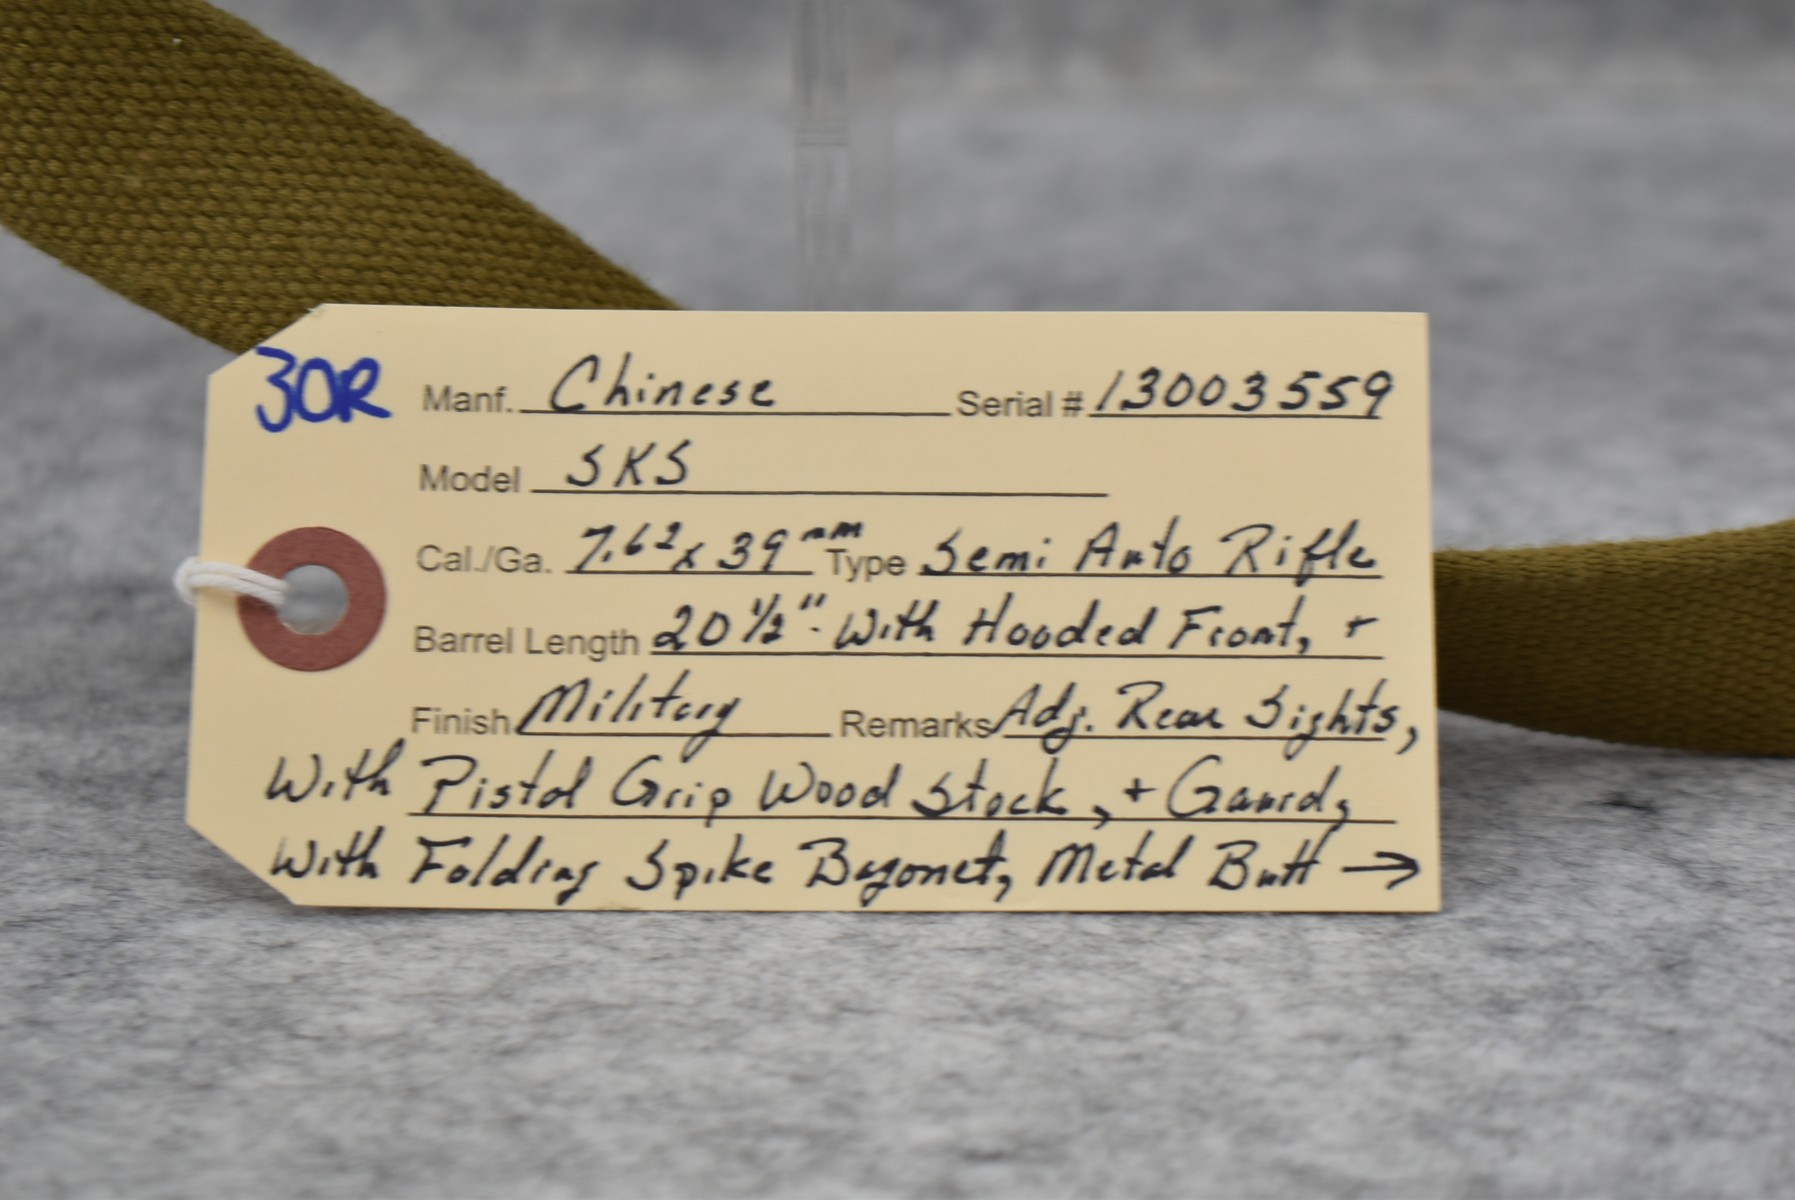 30R
Manf. Chinese Serial # 13003559
Model SKS
Cal./Ga. 7.62 x 39 mm Type Semi Auto Rifle
Barrel Length 20 1/2" - With Hooded Front, +
Finish Military Remarks Adj. Rear Sights,
With Pistol Grip Wood Stock, + Gaurd,
With Folding Spike Bayonet, Metal Butt →